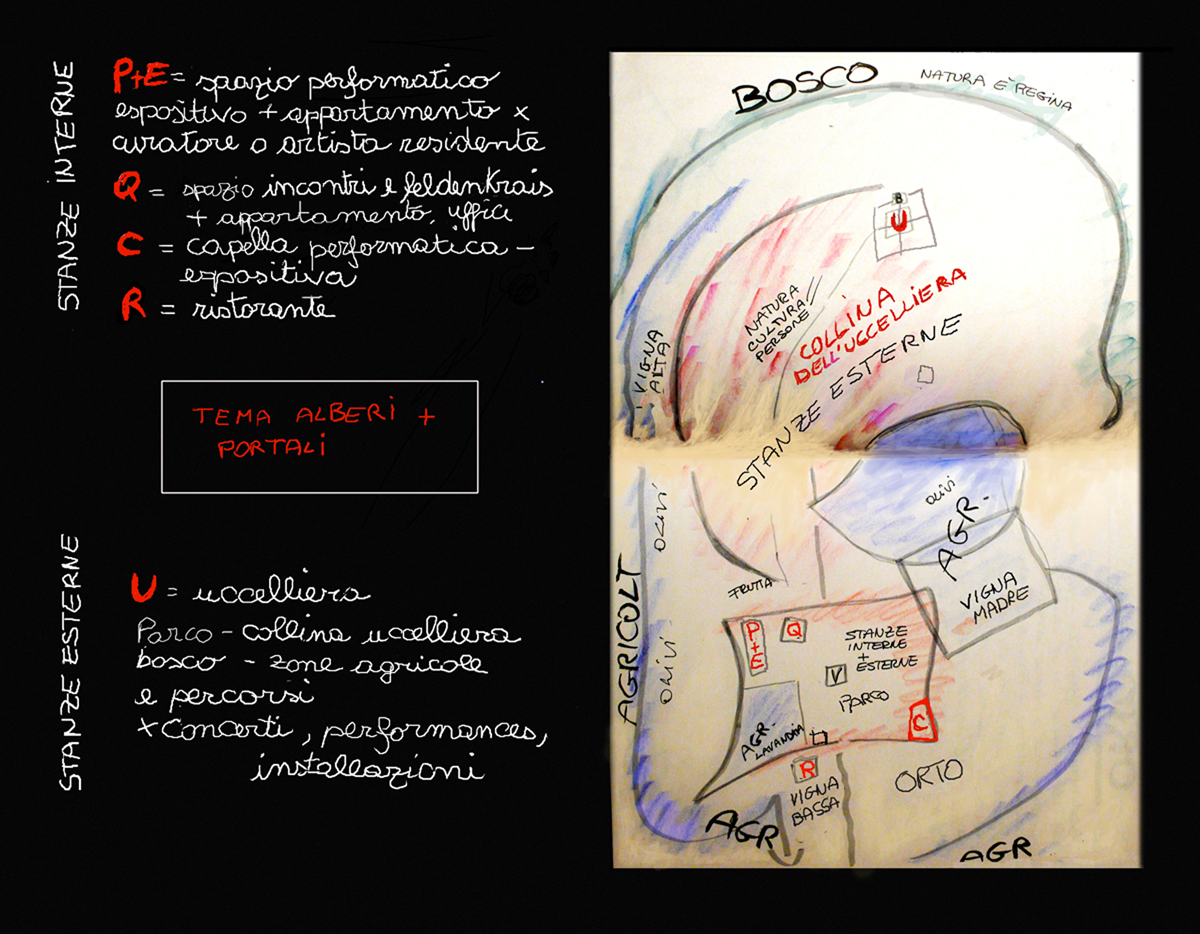 STANZE INTERNE
P+E = spazio performatico
espositivo + appartamento x
curatore o artista residente
Q = spazio incontri e feldenkrais
+ appartamento, uffici
C = capella performatica -
espositiva
R = ristorante
TEMA ALBERI +
PORTALI
STANZE ESTERNE
U = uccelliera
Parco - collina uccelliera
bosco - zone agricole
e percorsi
x concerti, performances,
installazioni
BOSCO
NATURA È REGINA
B
U
NATURA
CULTURA
PERSONE
COLLINA
DELL'UCCELLIERA
STANZE ESTERNE
VIGNA
ALTA
OLIVI
OLIVI
AGR.
AGRICOLT
FRUTTA
VIGNA
MADRE
P+E
Q
STANZE
INTERNE
+
ESTERNE
V
PARCO
OLIVI
AGR.
LAVANDA
C
R
VIGNA
BASSA
ORTO
AGR
AGR